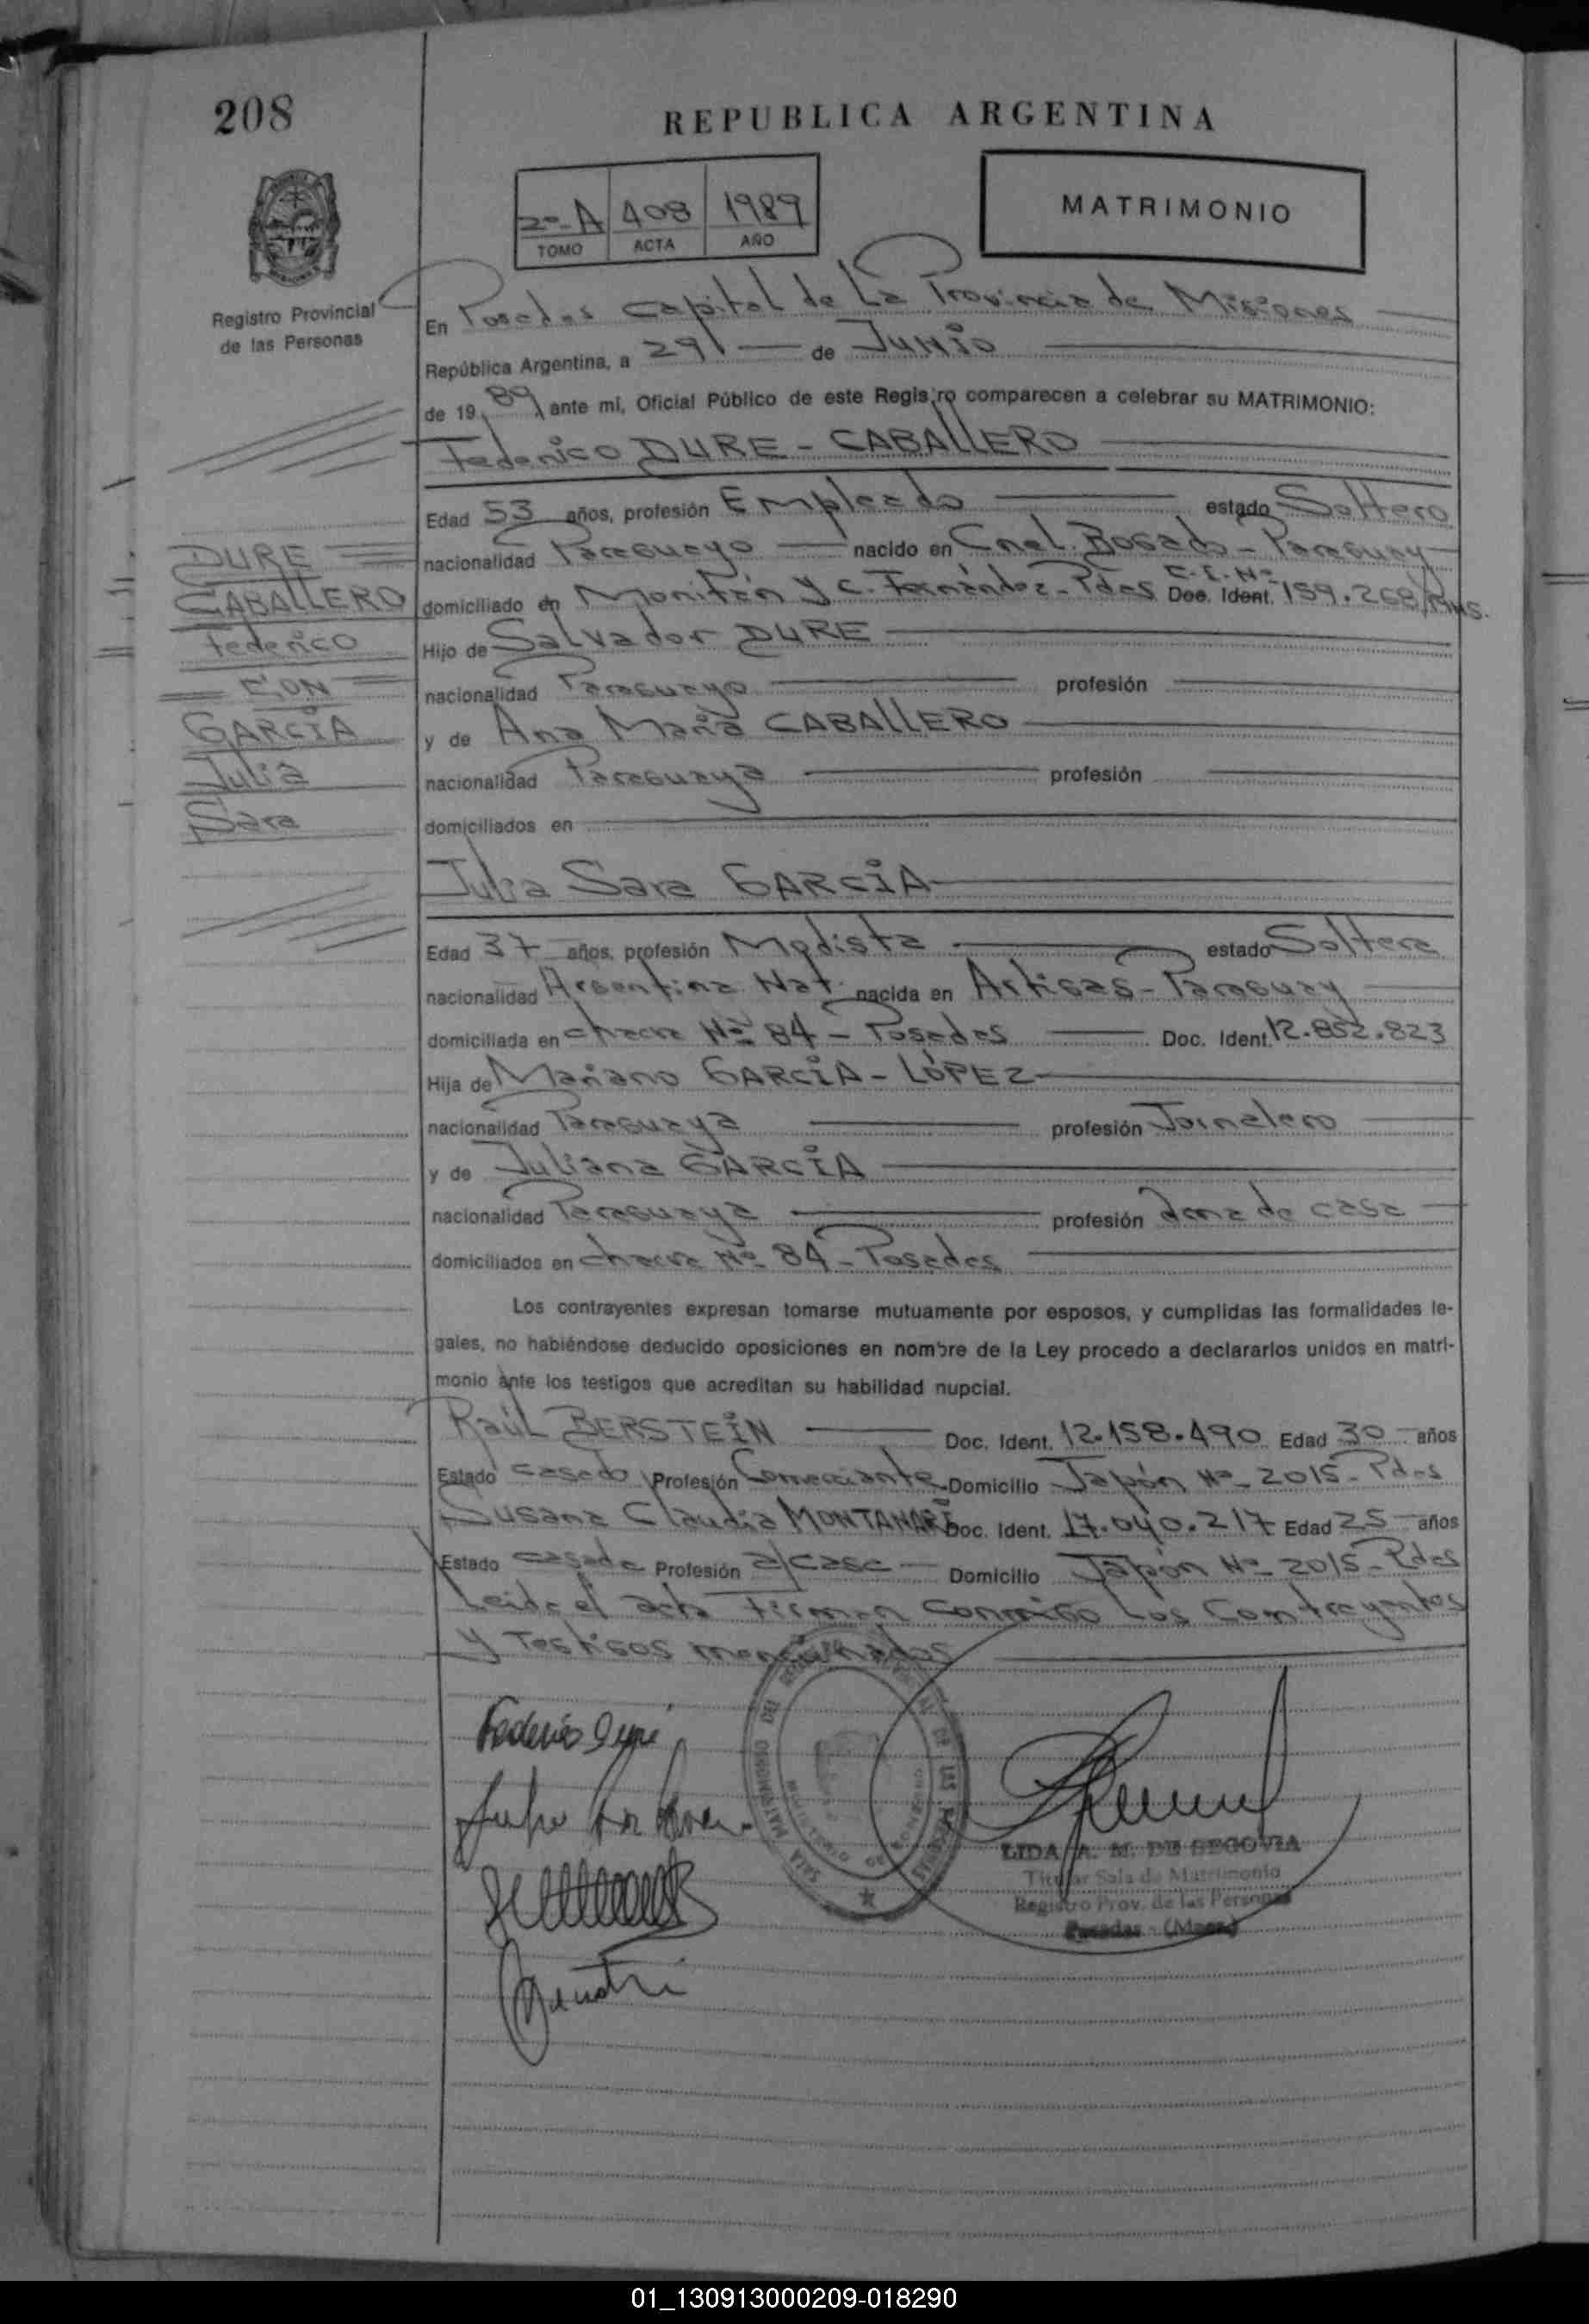 208
REPUBLICA ARGENTINA
2º-A 408 1989
TOMO ACTA AÑO
MATRIMONIO
Registro Provincial
de las Personas
En Posadas Capital de La Provincia de Misiones
República Argentina, a 29 de Junio
de 19 89 ante mí, Oficial Público de este Registro comparecen a celebrar su MATRIMONIO:
Federico DURE - CABALLERO
Edad 53 años, profesión Empleado estado Soltero
nacionalidad Paraguayo nacido en Cnel. Bogado - Paraguay
domiciliado en y C. Fernández - Pdas C.I.Nº Doc. Ident. 159.268/Mnes.
Hijo de Salvador DURE
nacionalidad Paraguayo profesión
y de Ana María CABALLERO
nacionalidad Paraguaya profesión
domiciliados en
DURE
CABALLERO
Federico
CON
GARCÍA
Julia
Sara
Julia Sara GARCÍA
Edad 37 años, profesión Modista estado Soltera
nacionalidad Argentina Nat. nacida en Artigas - Paraguay
domiciliada en chacra Nº 84 - Posadas Doc. Ident. 12.852.823
Hija de Mariano GARCÍA - LÓPEZ
nacionalidad Paraguaya profesión Jornalero
y de Juliana GARCÍA
nacionalidad Paraguaya profesión ama de casa
domiciliados en chacra Nº 84 - Posadas
Los contrayentes expresan tomarse mutuamente por esposos, y cumplidas las formalidades le-
gales, no habiéndose deducido oposiciones en nombre de la Ley procedo a declararlos unidos en matri-
monio ante los testigos que acreditan su habilidad nupcial.
Raúl BERSTEIN Doc. Ident. 12.158.490 Edad 30 años
Estado casado Profesión Comerciante Domicilio Japón Nº 2015 - Pdas
Susana Claudia MONTANARI Doc. Ident. 17.040.217 Edad 25 años
Estado casada Profesión a/casa Domicilio Japón Nº 2015 - Pdas
Leida el acta Firman conmigo Los Contrayentes
y Testigos mencionados
Federico Dure
LIDA A. M. DE SEGOVIA
Titular Sala de Matrimonio
Registro Prov. de las Personas
Posadas - (Mnes)
01_130913000209-018290